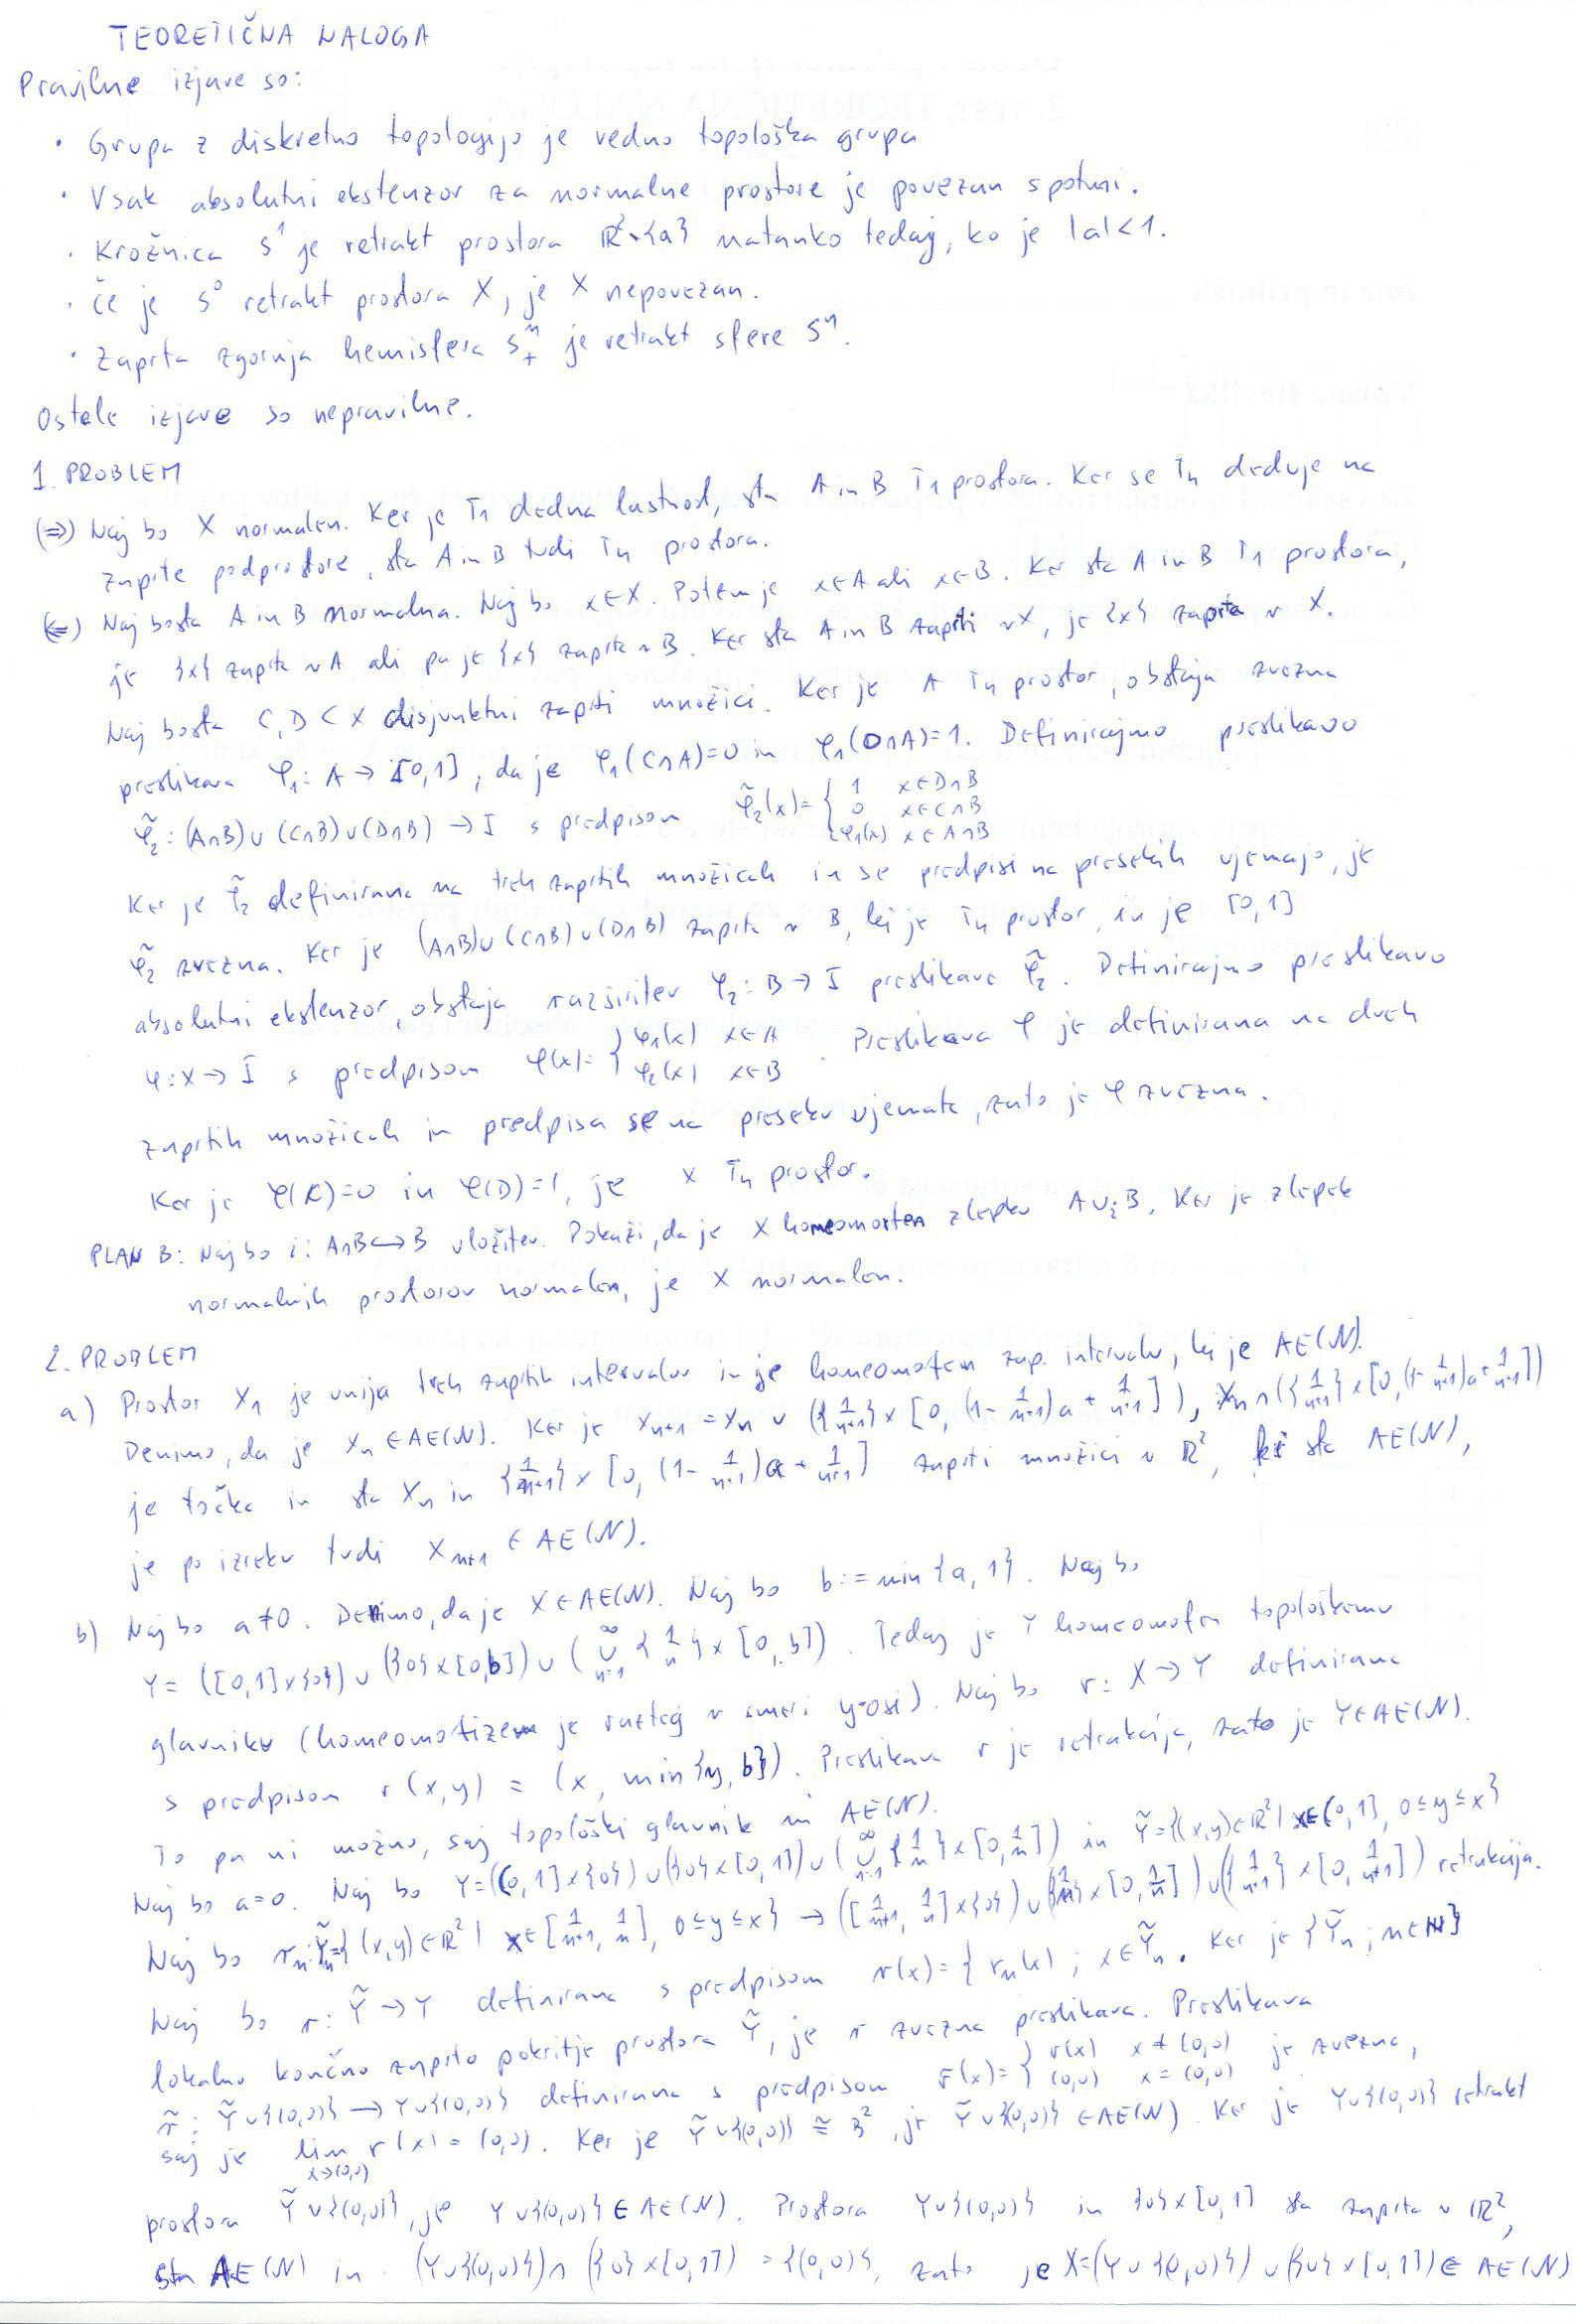 TEORETIČNA NALOGA
Pravilne izjave so:
• Grupa z diskretno topologijo je vedno topološka grupa
• Vsak absolutni ekstenzor za normalne prostore je povezan s potmi.
• Krožnica S¹ je retrakt prostora ℝ²∖{a} natanko tedaj, ko je |a|<1.
• Če je S⁰ retrakt prostora X, je X nepovezan.
• Zaprta zgornja hemisfera Sⁿ₊ je retrakt sfere Sⁿ.
Ostale izjave so nepravilne.
1. PROBLEM
(⇒) Naj bo X normalen. Ker je T₁ dedna lastnost, sta A in B T₁ prostora. Ker se T₄ deduje na
zaprte podprostore, sta A in B tudi T₄ prostora.
(⇐) Naj bosta A in B normalna. Naj bo x∈X. Potem je x∈A ali x∈B. Ker sta A in B T₁ prostora,
je {x} zaprta v A ali pa je {x} zaprta v B. Ker sta A in B zaprti v X, je {x} zaprta v X.
Naj bosta C,D⊂X disjunktni zaprti množici. Ker je A T₄ prostor, obstaja zvezna
preslikava φ₁: A→[0,1], da je φ₁(C∩A)=0 in φ₁(D∩A)=1. Definirajmo preslikavo
φ̃₂: (A∩B)∪(C∩B)∪(D∩B)→I s predpisom φ̃₂(x)={ 1 x∈D∩B
0 x∈C∩B
φ₁(x) x∈A∩B
Ker je φ̃₂ definirana na treh zaprtih množicah in se predpisi na presekih ujemajo, je
φ̃₂ zvezna. Ker je (A∩B)∪(C∩B)∪(D∩B) zaprta v B, ki je T₄ prostor, in je [0,1]
absolutni ekstenzor, obstaja razširitev φ₂: B→I preslikave φ̃₂. Definirajmo preslikavo
φ: X→I s predpisom φ(x)={ φ₁(x) x∈A
φ₂(x) x∈B . Preslikava φ je definirana na dveh
zaprtih množicah in predpisa se na preseku ujemata, zato je φ zvezna.
Ker je φ(C)=0 in φ(D)=1, je X T₄ prostor.
PLAN B: Naj bo i: A∩B↪B vložitev. Pokaži, da je X homeomorfen zlepku A∪ᵢB. Ker je zlepek
normalnih prostorov normalen, je X normalen.
2. PROBLEM
a) Prostor X₁ je unija treh zaprtih intervalov in je homeomorfen zap. intervalu, ki je AE(𝒩).
Denimo, da je Xₙ∈AE(𝒩). Ker je Xₙ₊₁ = Xₙ ∪ ({1/(n+1)}×[0,(1-1/(n+1))a+1/(n+1)]), Xₙ∩({1/(n+1)}×[0,(1-1/(n+1))a+1/(n+1)])
je točka in sta Xₙ in {1/(n+1)}×[0,(1-1/(n+1))a+1/(n+1)] zaprti množici v ℝ², ki sta AE(𝒩),
je po izreku tudi Xₙ₊₁ ∈ AE(𝒩).
b) Naj bo a≠0. Denimo, da je X∈AE(𝒩). Naj bo b:=min{a,1}. Naj bo
Y=([0,1]×{0})∪({0}×[0,b])∪(⋃ₙ₌₁^∞ {1/n}×[0,b]). Tedaj je Y homeomorfen topološkemu
glavniku (homeomorfizem je razteg v smeri y-osi). Naj bo r: X→Y definirana
s predpisom r(x,y) = (x, min{y,b}). Preslikava r je retrakcija, zato je Y∈AE(𝒩).
To pa ni možno, saj topološki glavnik ni AE(𝒩).
Naj bo a=0. Naj bo Y=((0,1]×{0})∪({0}×[0,1])∪(⋃ₙ₌₁^∞ {1/n}×[0,1/n]) in Ỹ={(x,y)∈ℝ²| x∈(0,1], 0≤y≤x}
Naj bo rₙ: Ỹₙ={(x,y)∈ℝ²| x∈[1/(n+1),1/n], 0≤y≤x}→([1/(n+1),1/n]×{0})∪({1/n}×[0,1/n])∪({1/(n+1)}×[0,1/(n+1)]) retrakcija.
Naj bo r: Ỹ→Y definirana s predpisom r(x)={ rₙ(x) ; x∈Ỹₙ. Ker je {Ỹₙ ; n∈ℕ}
lokalno končno zaprto pokritje prostora Ỹ, je r zvezna preslikava. Preslikava
r̃: Ỹ∪{(0,0)}→Y∪{(0,0)} definirana s predpisom r̃(x)={ r(x) x≠(0,0)
(0,0) x=(0,0) je zvezna,
saj je lim_{x→(0,0)} r(x)=(0,0). Ker je Ỹ∪{(0,0)}≅B², je Ỹ∪{(0,0)}∈AE(𝒩). Ker je Y∪{(0,0)} retrakt
prostora Ỹ∪{(0,0)}, je Y∪{(0,0)}∈AE(𝒩). Prostora Y∪{(0,0)} in {0}×[0,1] sta zaprta v ℝ²,
sta AE(𝒩) in (Y∪{(0,0)})∩({0}×[0,1])={(0,0)}, zato je X=(Y∪{(0,0)})∪({0}×[0,1])∈AE(𝒩)